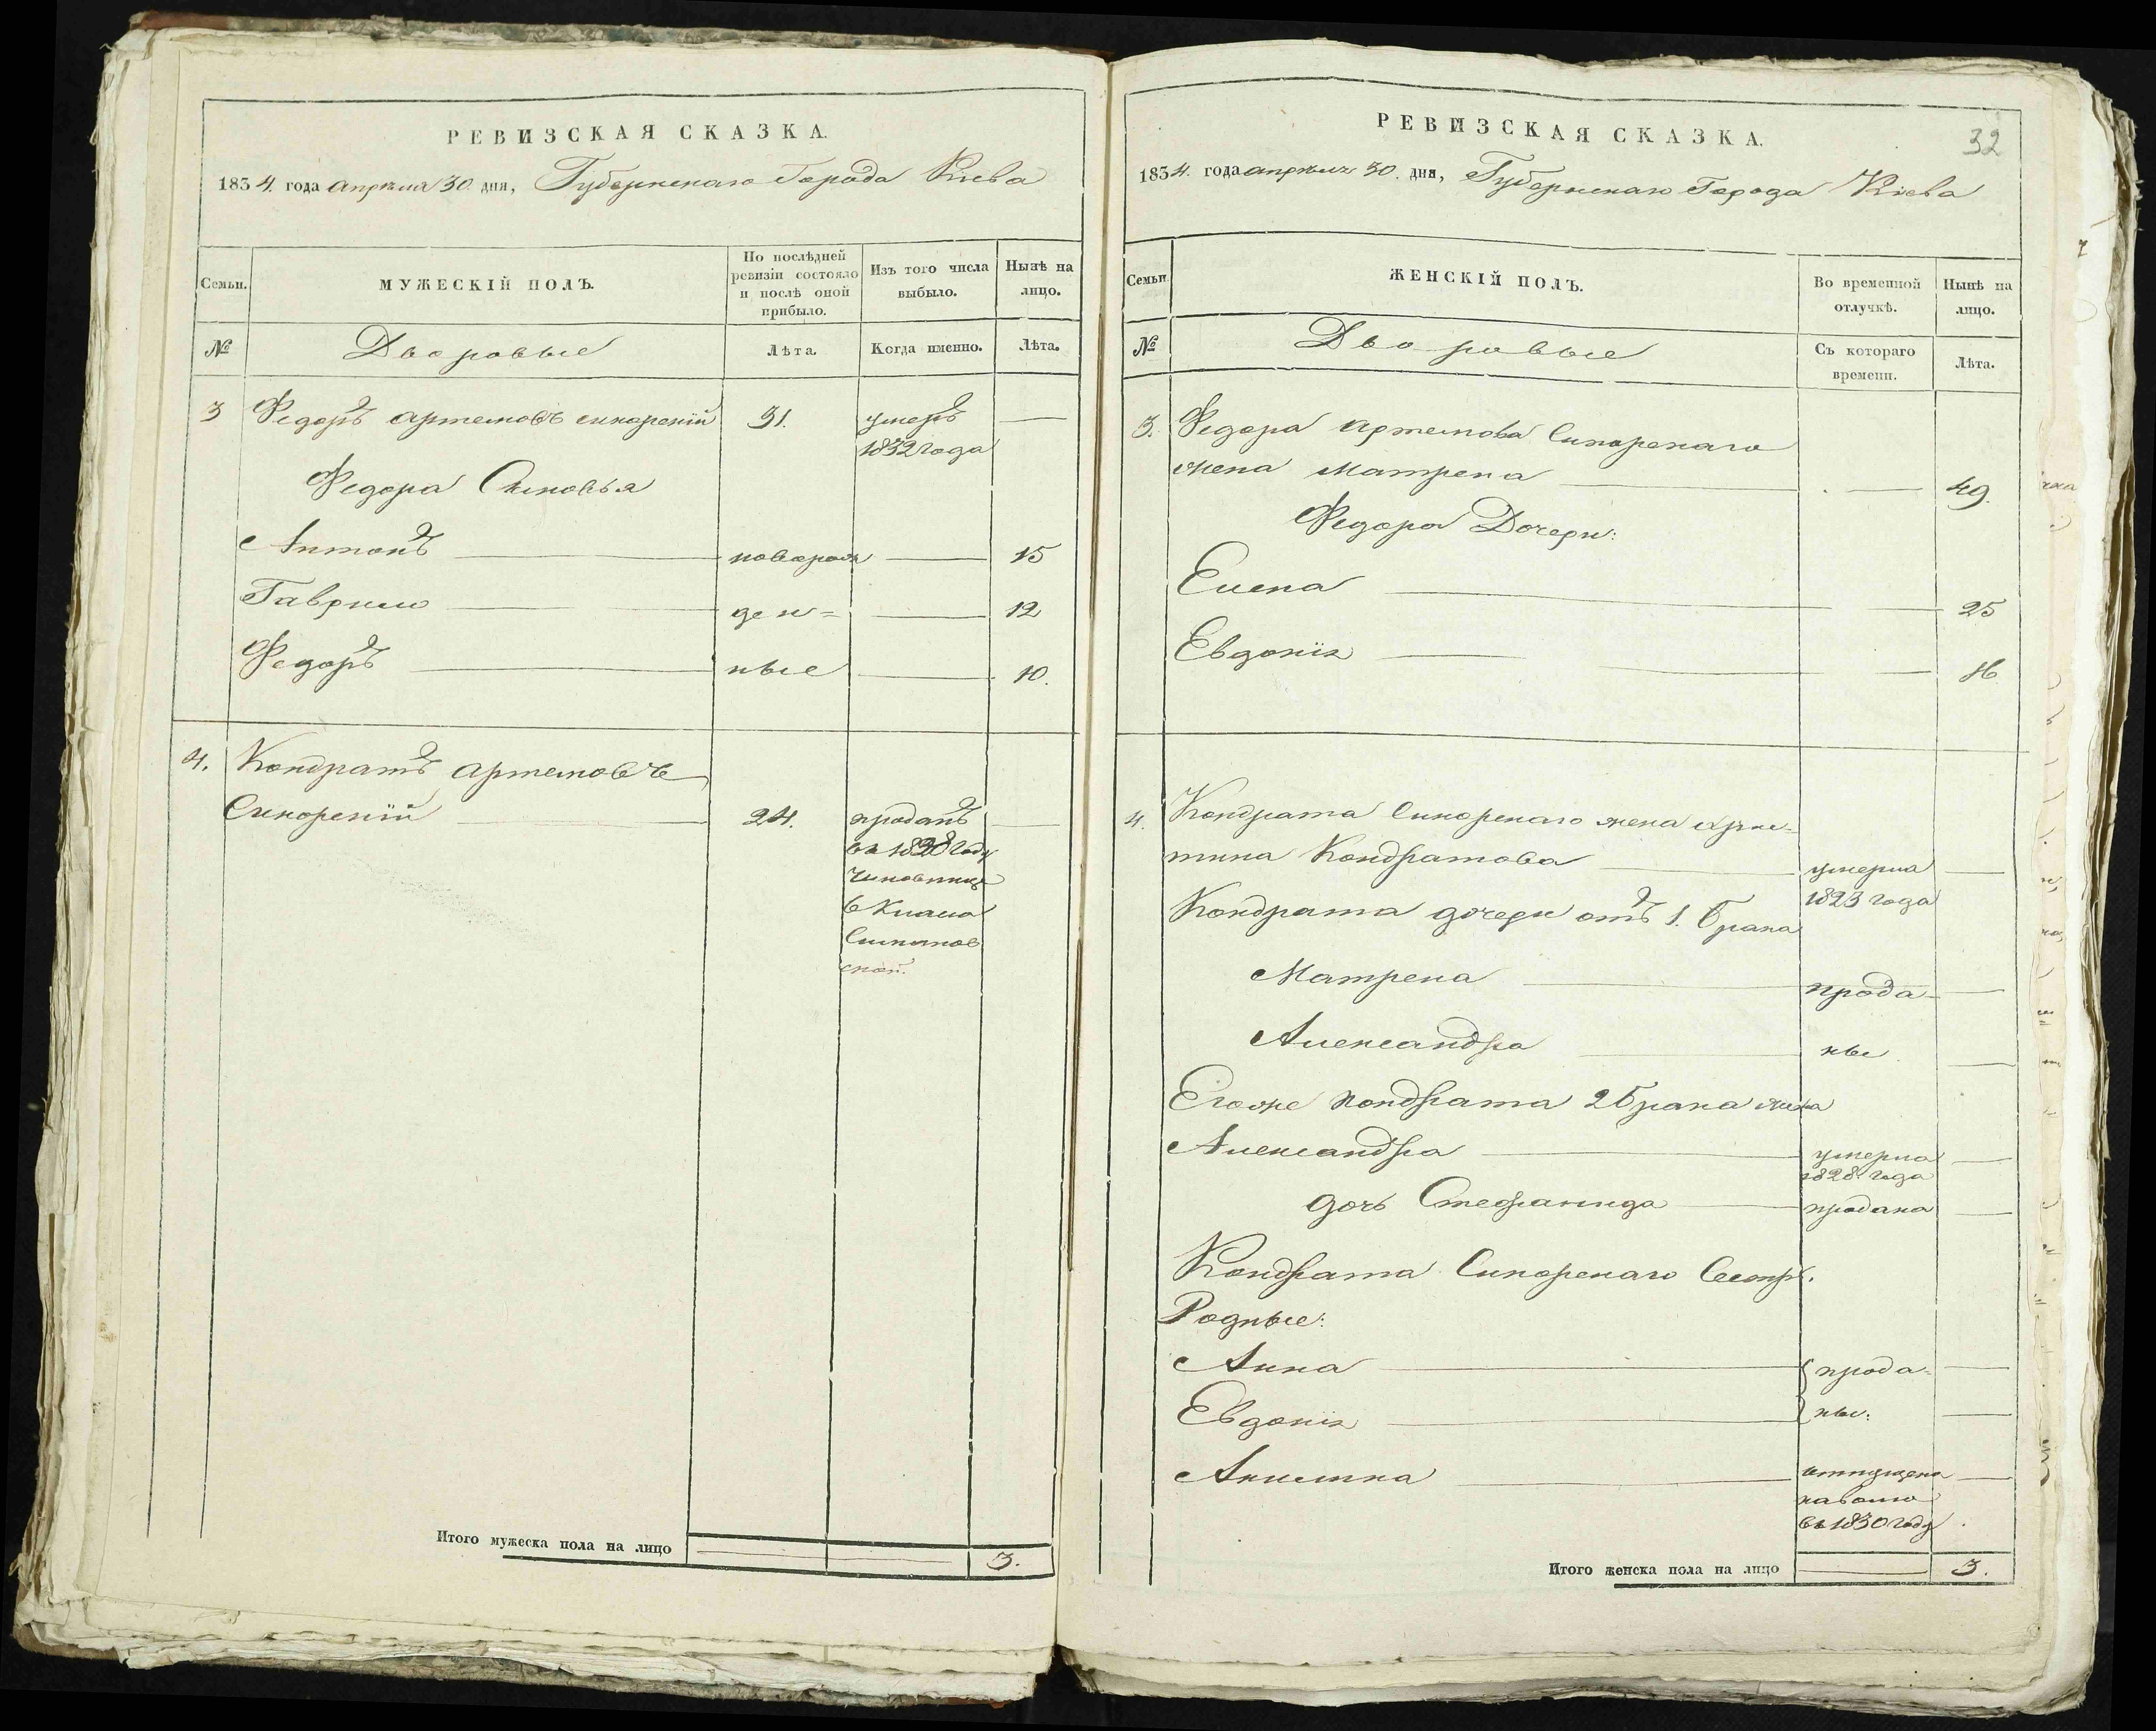 РЕВИЗСКАЯ СКАЗКА.
1834. года апрѣля 30. дня, Губернскаго Города Кіева
Семьи.
МУЖЕСКІЙ ПОЛЪ.
По послѣдней ревизіи состояло и послѣ оной прибыло.
Изъ того числа выбыло.
Нынѣ на лицо.
№
Дворовые
Лѣта.
Когда именно.
Лѣта.
3 Федоръ Артемовъ Сикорскій 31. умеръ
1832 года
Федора Сыновья
Антонъ новорож 15
Гаврило ден= 12
Федоръ ные 10.
4. Кондратъ Артемовъ
Сикорскій 24. проданъ
въ 1828 году
чиновниц

скай.
Итого мужеска пола на лицо 3.
32
РЕВИЗСКАЯ СКАЗКА.
1834. года апрѣля 30. дня, Губернскаго Города Кіева
Семьи
ЖЕНСКІЙ ПОЛЪ.
Во временной отлучкѣ.
Нынѣ на лицо.
№
Дворовые
Съ котораго времени.
Лѣта.
3. Федора Артемова Сикорскаго
жена Матрена 49.
Федора Дочери:
Елена 25
Евдокія 16
4. Кондрата Сикорскаго жена
Кондратова умерла
1823 года
Кондрата дочери отъ 1. брака
Матрена прода-
Александра ны
Егоже Кондрата 2 брака жена
Александра умерла
1828 года
дочь Стефанида продана
Кондрата Сикорскаго Сестры.
Родные:
Анна прода-
Евдокія ны:
Акилина отпущена
наволю
въ 1830 году.
Итого женска пола на лицо 3.